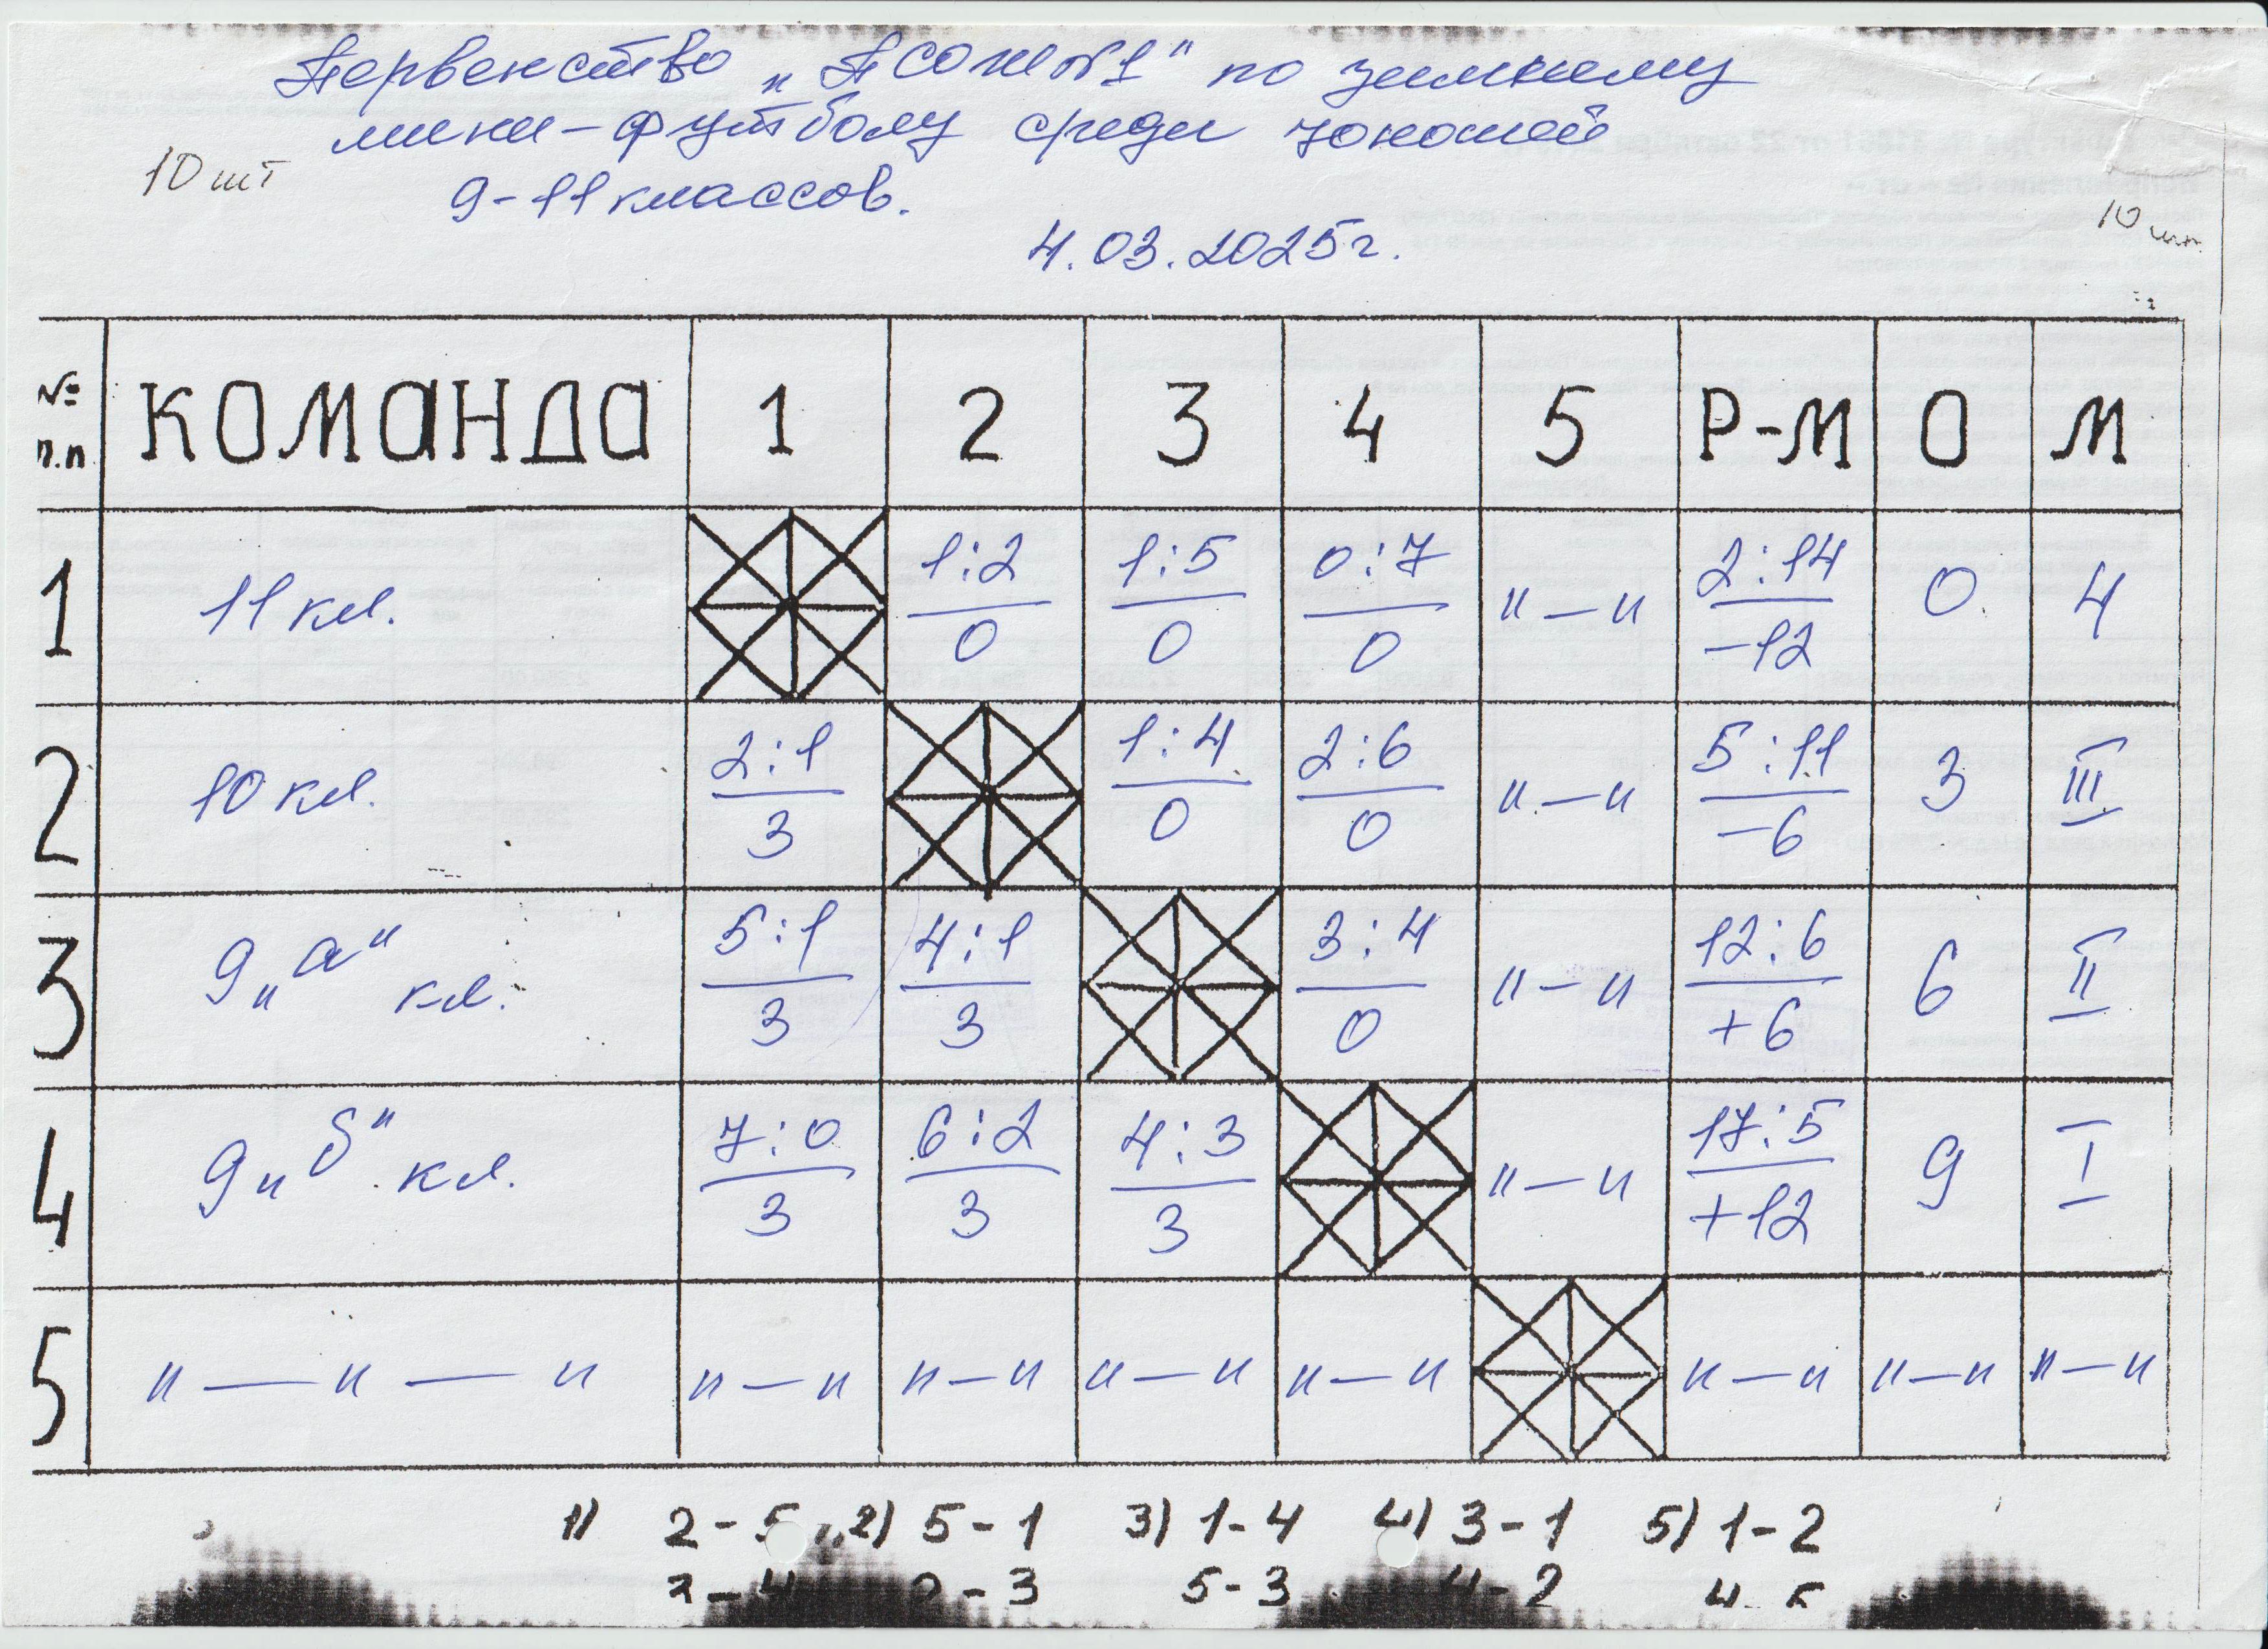 Первенство „ПСОШ №1" по зимнему
мини-футболу среди юношей
10 шт
9-11 классов.
10 шт
4.03.2025г.
№ п.п КОМАНДА 1 2 3 4 5 Р-М О М
1 11 кл. 1:2 1:5 0:7 "—" 2:14 0 4
0 0 0 -12
2 10 кл. 2:1 1:4 2:6 "—" 5:11 3 III
3 0 0 -6
3 9 „а" кл. 5:1 4:1 3:4 "—" 12:6 6 II
3 3 0 +6
4 9 „б" кл. 7:0 6:2 4:3 "—" 17:5 9 I
3 3 3 +12
5 "—"—" "—" "—" "—" "—" "—" "—" "—"
1) 2-5 2) 5-1 3) 1-4 4) 3-1 5) 1-2
3-4 2-3 5-3 4-2 4-5